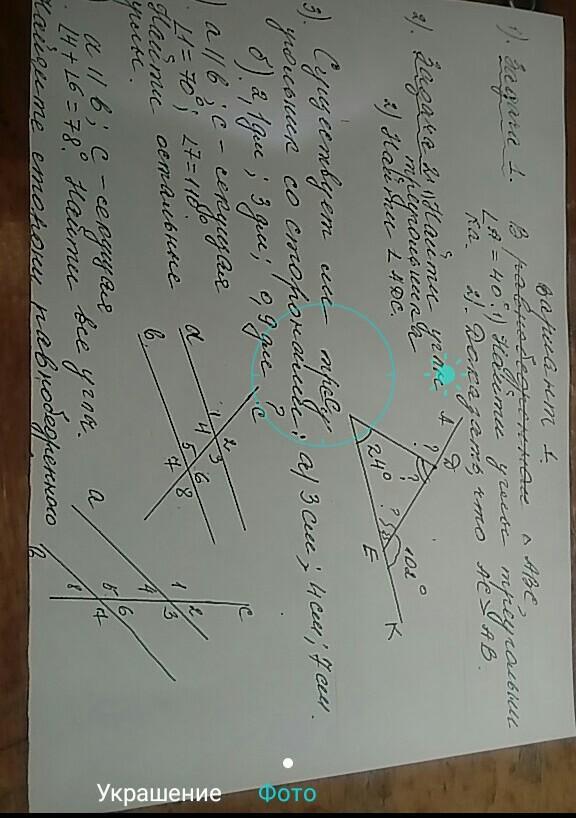 Вариант 1.
1). Задача 1. В равнобедренном △ ABC,
∠A = 40° 1) Найти углы треугольни
ка. 2). Доказать, что AC > AB.
2). Задача 2. 1) Найти углы
треугольника
2) Найти ∠ADC.
A
D
?
?
24°
?
102°
E
K
3) Существует ли треу
гольник со сторонами: а) 3 см; 4 см; 7 см.
б) 2,1 дм; 3 дм; 0,9 дм ?
) a || b; c - секущая
∠1 = 70°; ∠7 = 110°
Найти остальные
углы.
a
b
c
1 2
4 3
5 6
7 8
) a || b; c - секущая
∠4 + ∠6 = 78°. Найти все углы.
a
c
b
1 2
4 3
5 6
8 7
Найдите стороны равнобедренного
Украшение Фото